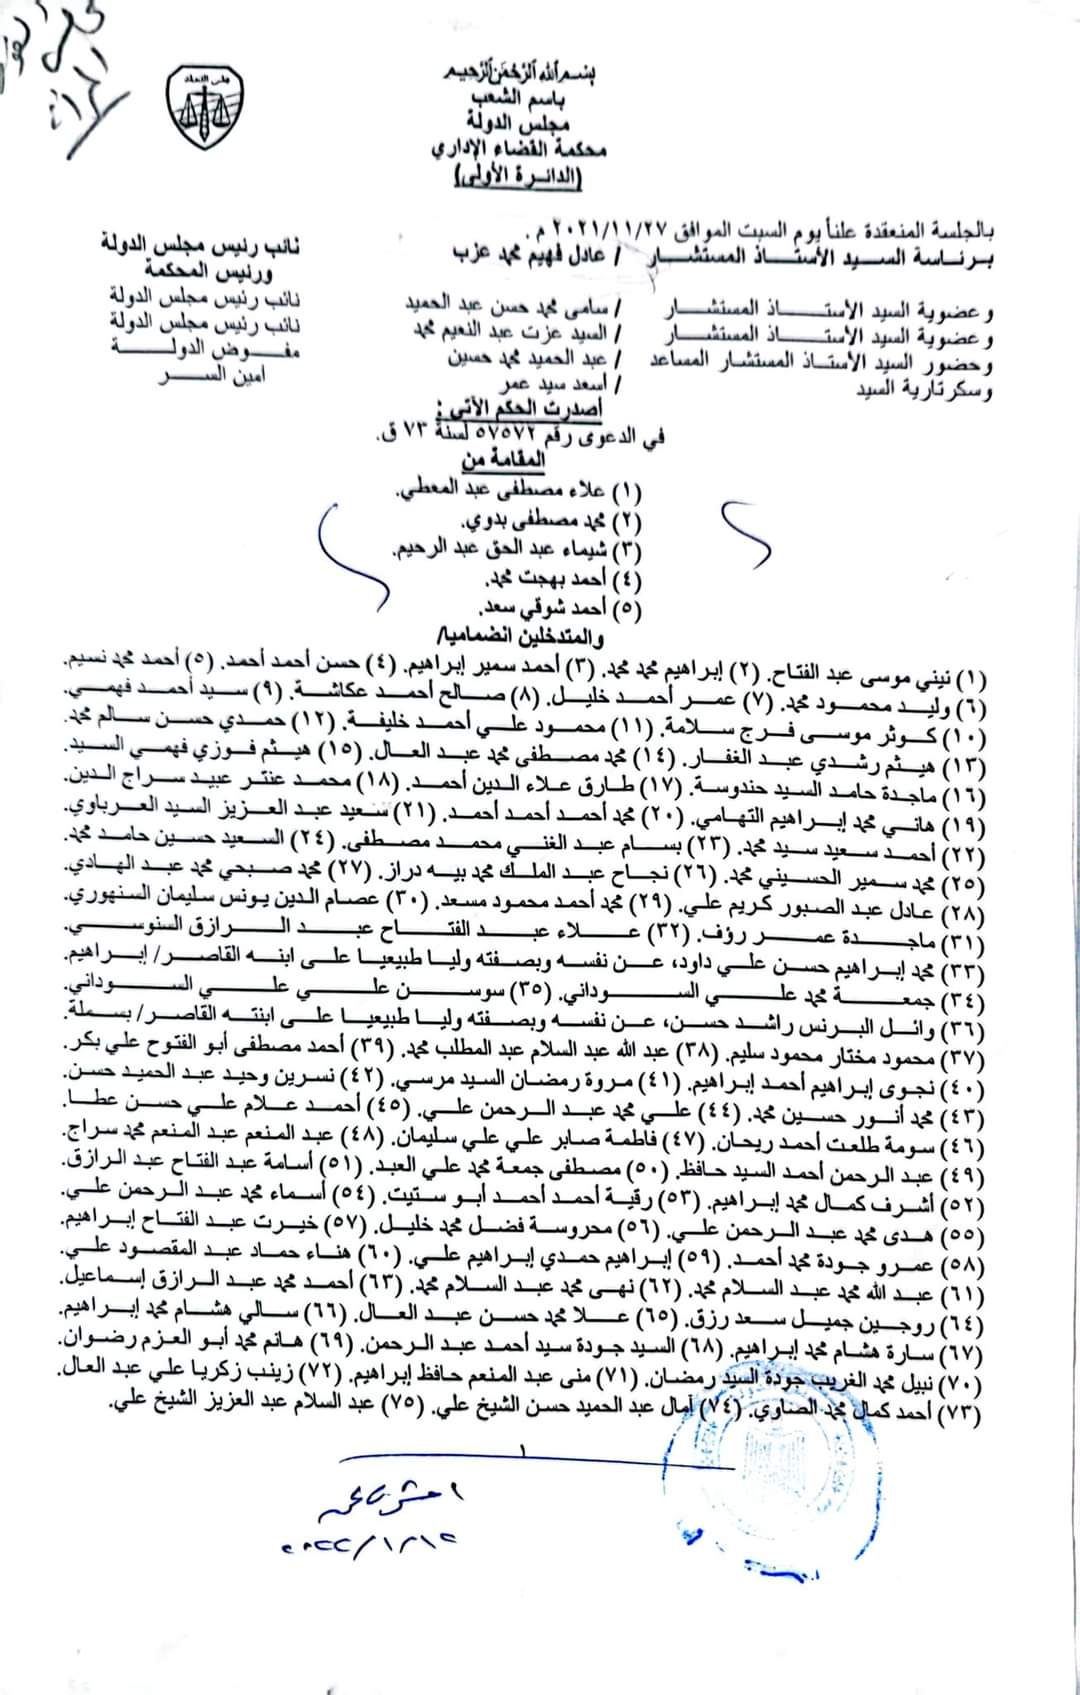 مجلس الدولة
بسم الله الرحمن الرحيم
باسم الشعب
مجلس الدولة
محكمة القضاء الإداري
(الدائرة الأولى)
بالجلسة المنعقدة علناً يوم السبت الموافق ٢٠٢١/١١/٢٧ م .
برئاسة السيد الأستاذ المستشار / عادل فهيم محمد عزب نائب رئيس مجلس الدولة
ورئيس المحكمة
وعضوية السيد الأستاذ المستشار / سامى محمد حسن عبد الحميد نائب رئيس مجلس الدولة
وعضوية السيد الأستاذ المستشار / السيد عزت عبد النعيم محمد نائب رئيس مجلس الدولة
وحضور السيد الأستاذ المستشار المساعد / عبد الحميد محمد حسين مفوض الدولة
وسكرتارية السيد / أسعد سيد عمر امين السر
أصدرت الحكم الآتى :
في الدعوى رقم ٥٧٥٧٢ لسنة ٧٣ ق.
المقامة من
(١) علاء مصطفى عبد المعطي.
(٢) محمد مصطفى بدوي.
(٣) شيماء عبد الحق عبد الرحيم.
(٤) أحمد بهجت محمد.
(٥) أحمد شوقي سعد.
والمتدخلين انضماميا/
(١) نيني موسى عبد الفتاح. (٢) إبراهيم محمد محمد. (٣) أحمد سمير إبراهيم. (٤) حسن أحمد أحمد. (٥) أحمد محمد نسيم.
(٦) وليد محمود محمد. (٧) عمر أحمد خليل. (٨) صالح أحمد عكاشة. (٩) سيد أحمد فهمي.
(١٠) كوثر موسى فرج سلامة. (١١) محمود علي أحمد خليفة. (١٢) حمدي حسن سالم محمد.
(١٣) هيثم رشدي عبد الغفار. (١٤) محمد مصطفى محمد عبد العال. (١٥) هيثم فوزي فهمي السيد.
(١٦) ماجدة حامد السيد حندوسة. (١٧) طارق علاء الدين أحمد. (١٨) محمد عنتر عبيد سراج الدين.
(١٩) هاني محمد إبراهيم التهامي. (٢٠) محمد أحمد أحمد أحمد. (٢١) سعيد عبد العزيز السيد العرباوي.
(٢٢) أحمد سعيد سيد محمد. (٢٣) بسام عبد الغني محمد مصطفى. (٢٤) السعيد حسين حامد محمد.
(٢٥) محمد سمير الحسيني محمد. (٢٦) نجاح عبد الملك محمد بيه دراز. (٢٧) محمد صبحي محمد عبد الهادي.
(٢٨) عادل عبد الصبور كريم علي. (٢٩) محمد أحمد محمود مسعد. (٣٠) عصام الدين يونس سليمان السنهوري.
(٣١) ماجدة عمر رؤف. (٣٢) علاء عبد الفتاح عبد الرازق السنوسي.
(٣٣) محمد إبراهيم حسن علي داود، عن نفسه وبصفته وليا طبيعيا على ابنه القاصر/ إبراهيم.
(٣٤) جمعة محمد علي السوداني. (٣٥) سوسن علي علي السوداني.
(٣٦) وائل البرنس راشد حسن، عن نفسه وبصفته وليا طبيعيا على ابنته القاصر/ بسملة.
(٣٧) محمود مختار محمود سليم. (٣٨) عبد الله عبد السلام عبد المطلب محمد. (٣٩) أحمد مصطفى أبو الفتوح علي بكر.
(٤٠) نجوى إبراهيم أحمد إبراهيم. (٤١) مروة رمضان السيد مرسي. (٤٢) نسرين وحيد عبد الحميد حسن.
(٤٣) محمد أنور حسين محمد. (٤٤) علي محمد عبد الرحمن علي. (٤٥) أحمد علام علي حسن عطا.
(٤٦) سومة طلعت أحمد ريحان. (٤٧) فاطمة صابر علي علي سليمان. (٤٨) عبد المنعم عبد المنعم محمد سراج.
(٤٩) عبد الرحمن أحمد السيد حافظ. (٥٠) مصطفى جمعة محمد علي العبد. (٥١) أسامة عبد الفتاح عبد الرازق.
(٥٢) أشرف كمال محمد إبراهيم. (٥٣) رقية أحمد أحمد أبو ستيت. (٥٤) أسماء محمد عبد الرحمن علي.
(٥٥) هدى محمد عبد الرحمن علي. (٥٦) محروسة فضل محمد خليل. (٥٧) خيرت عبد الفتاح إبراهيم.
(٥٨) عمرو جودة محمد أحمد. (٥٩) إبراهيم حمدي إبراهيم علي. (٦٠) هناء حماد عبد المقصود علي.
(٦١) عبد الله محمد عبد السلام محمد. (٦٢) نهى محمد عبد السلام محمد. (٦٣) أحمد محمد عبد الرازق إسماعيل.
(٦٤) روجين جميل سعد رزق. (٦٥) علا محمد حسن عبد العال. (٦٦) سالي هشام محمد إبراهيم.
(٦٧) سارة هشام محمد إبراهيم. (٦٨) السيد جودة سيد أحمد عبد الرحمن. (٦٩) هانم محمد أبو العزم رضوان.
(٧٠) نبيل محمد الغريب جودة السيد رمضان. (٧١) منى عبد المنعم حافظ إبراهيم. (٧٢) زينب زكريا علي عبد العال.
(٧٣) أحمد كمال محمد الصاوي. (٧٤) آمال عبد الحميد حسن الشيخ علي. (٧٥) عبد السلام عبد العزيز الشيخ علي.
١